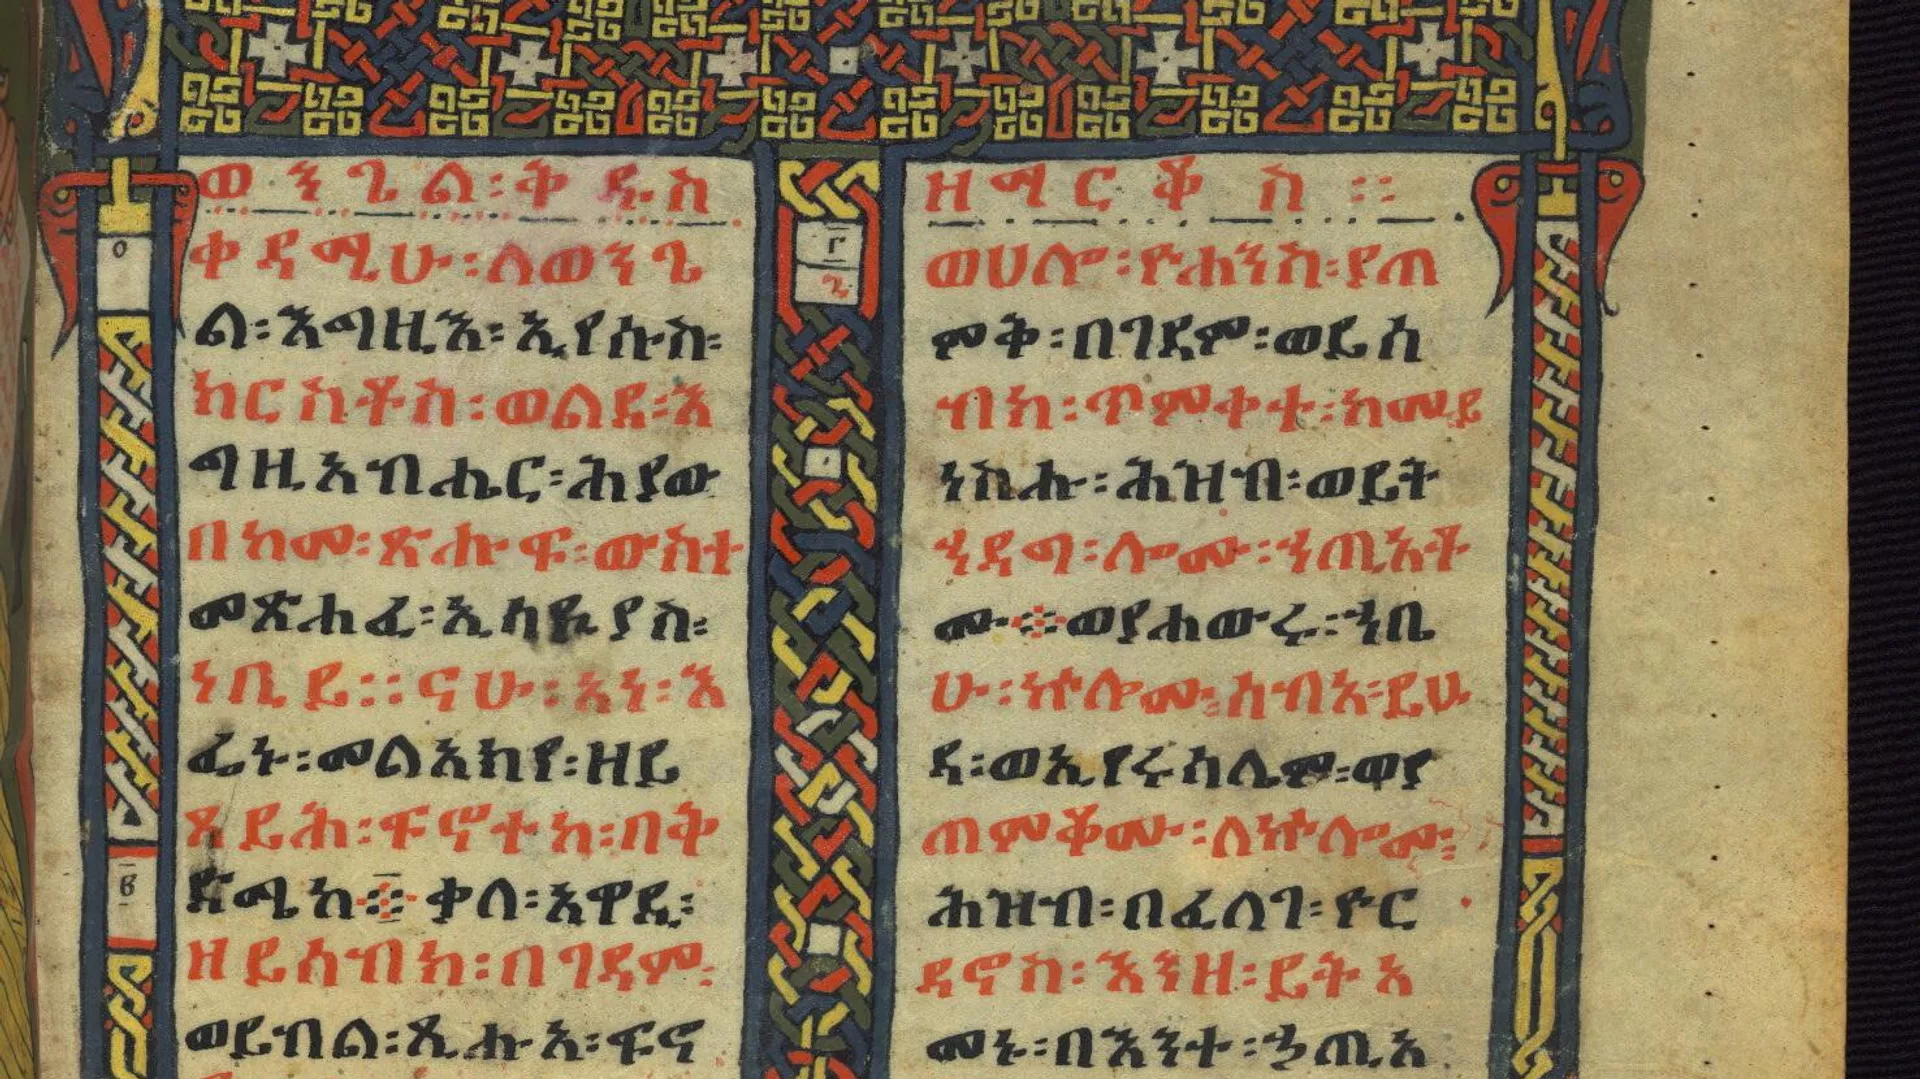 ወንጌል፡ቅዱስ
ቀዳሚሁ፡ለወንጌ
ል፡እግዚእ፡ኢየሱስ፡
ክርስቶስ፡ወልደ፡እ
ግዚአብሔር፡ሕያው
በከመ፡ጽሑፍ፡ውስተ
መጽሐፈ፡ኢሳይያስ፡
ነቢይ፡፡ናሁ፡አነ፡እ
ፌኑ፡መልአክየ፡ዘይ
ጸይሕ፡ፍኖተከ፡በቅ
ድሜከ፨ቃለ፡አዋዲ፡
ዘይሰብክ፡በገዳም፡
ወይብል፡ጺሑአ፡ፍኖ
ዘማርቆስ፡፡
ወሀሎ፡ዮሐንስ፡ያጠ
ምቅ፡በገዳም፡ወይሰ
ብክ፡ጥምቀተ፡ከመይ
ነስሑ፡ሕዝብ፡ወይት
ኀደግ፡ሎሙ፡ኀጢአቶ
ሙ፨ወያሐውሩ፡ኀቤ
ሁ፡ኵሎሙ፡ሰብአ፡ይሁ
ዳ፡ወኢየሩሳሌም፡ወያ
ጠምቆሙ፡ለኵሎሙ፡
ሕዝብ፡በፈለገ፡ዮር
ዳኖስ፡እንዘ፡ይትአ
መኑ፡በእንተ፡ኃጢአ